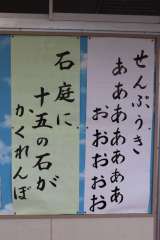 せんぷうき
ああああああ
おおおおお
石庭に
十五の石が
かくれんぼ